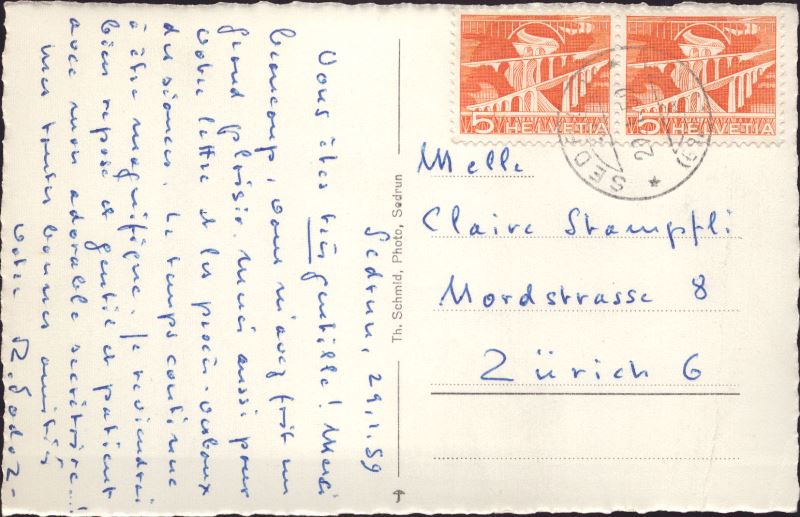 Sedrun, 29.1.59
Vous êtes très gentille! Merci
beaucoup, vous m'avez fait un
grand plaisir. Merci aussi pour
votre lettre et les procès-verbaux
des séances. Le temps continue
à être magnifique. Je reviendrai
bien reposé et gentil et patient
avec mon adorable secrétaire...!
mes toutes bonnes amitiés
votre R. Godoz-
Th. Schmid, Photo, Sedrun
5 HELVETIA
5 HELVETIA
SEDRUN
Melle
Claire Stampfli
Nordstrasse 8
Zürich 6